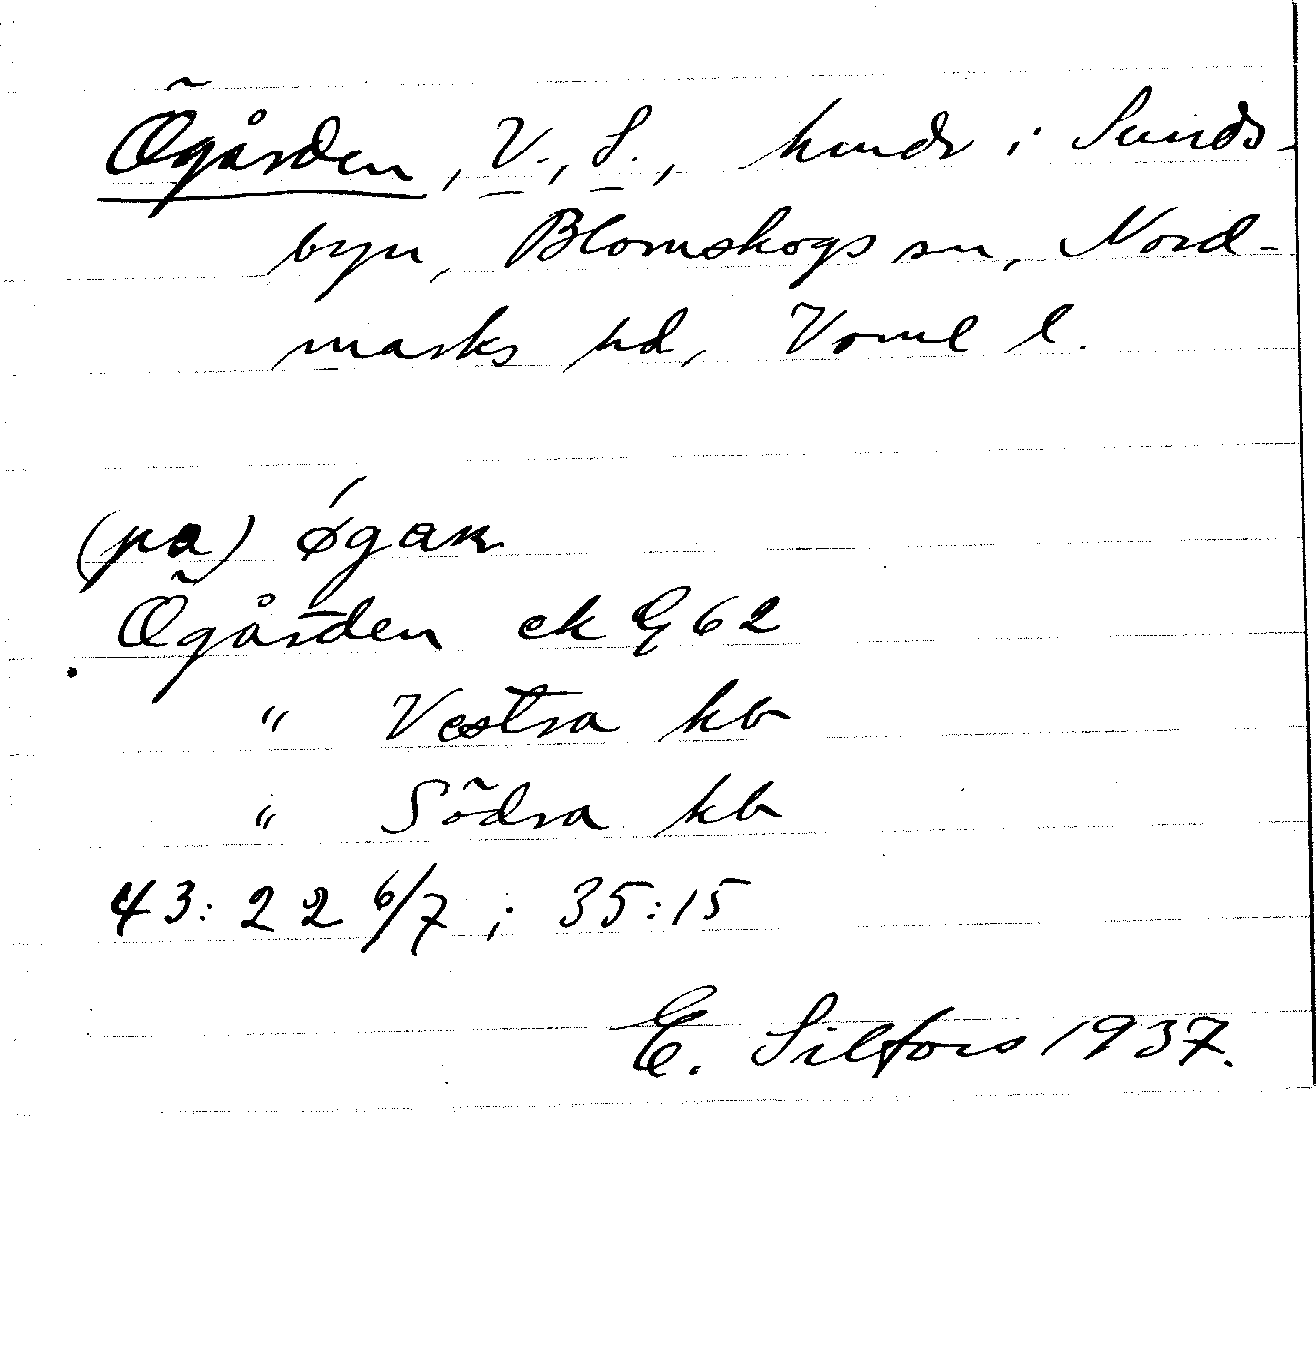 Ögården, V., S., hmdr i Sunds-
byn, Blomskogs sn, Nord-
marks hd, Vrml l.
(pa) ǿgaɴ
Ögården ek G 62
" Vestra kb
" Södra kb
43: 22 6/7 ; 35:15
E. Silfors 1937.